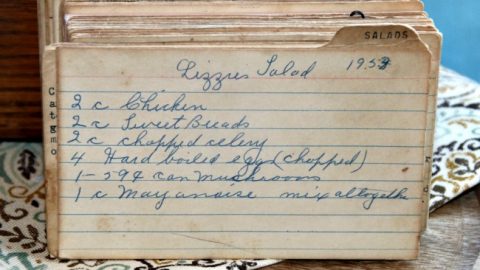 SALADS
Lizzies Salad 1953
2 c Chicken
2 c Sweet Breads
2 c chopped celery
4 Hard boiled eggs (chopped)
1-29¢ can mushrooms
1 c Mayanaise mix altogethe
Catgmo